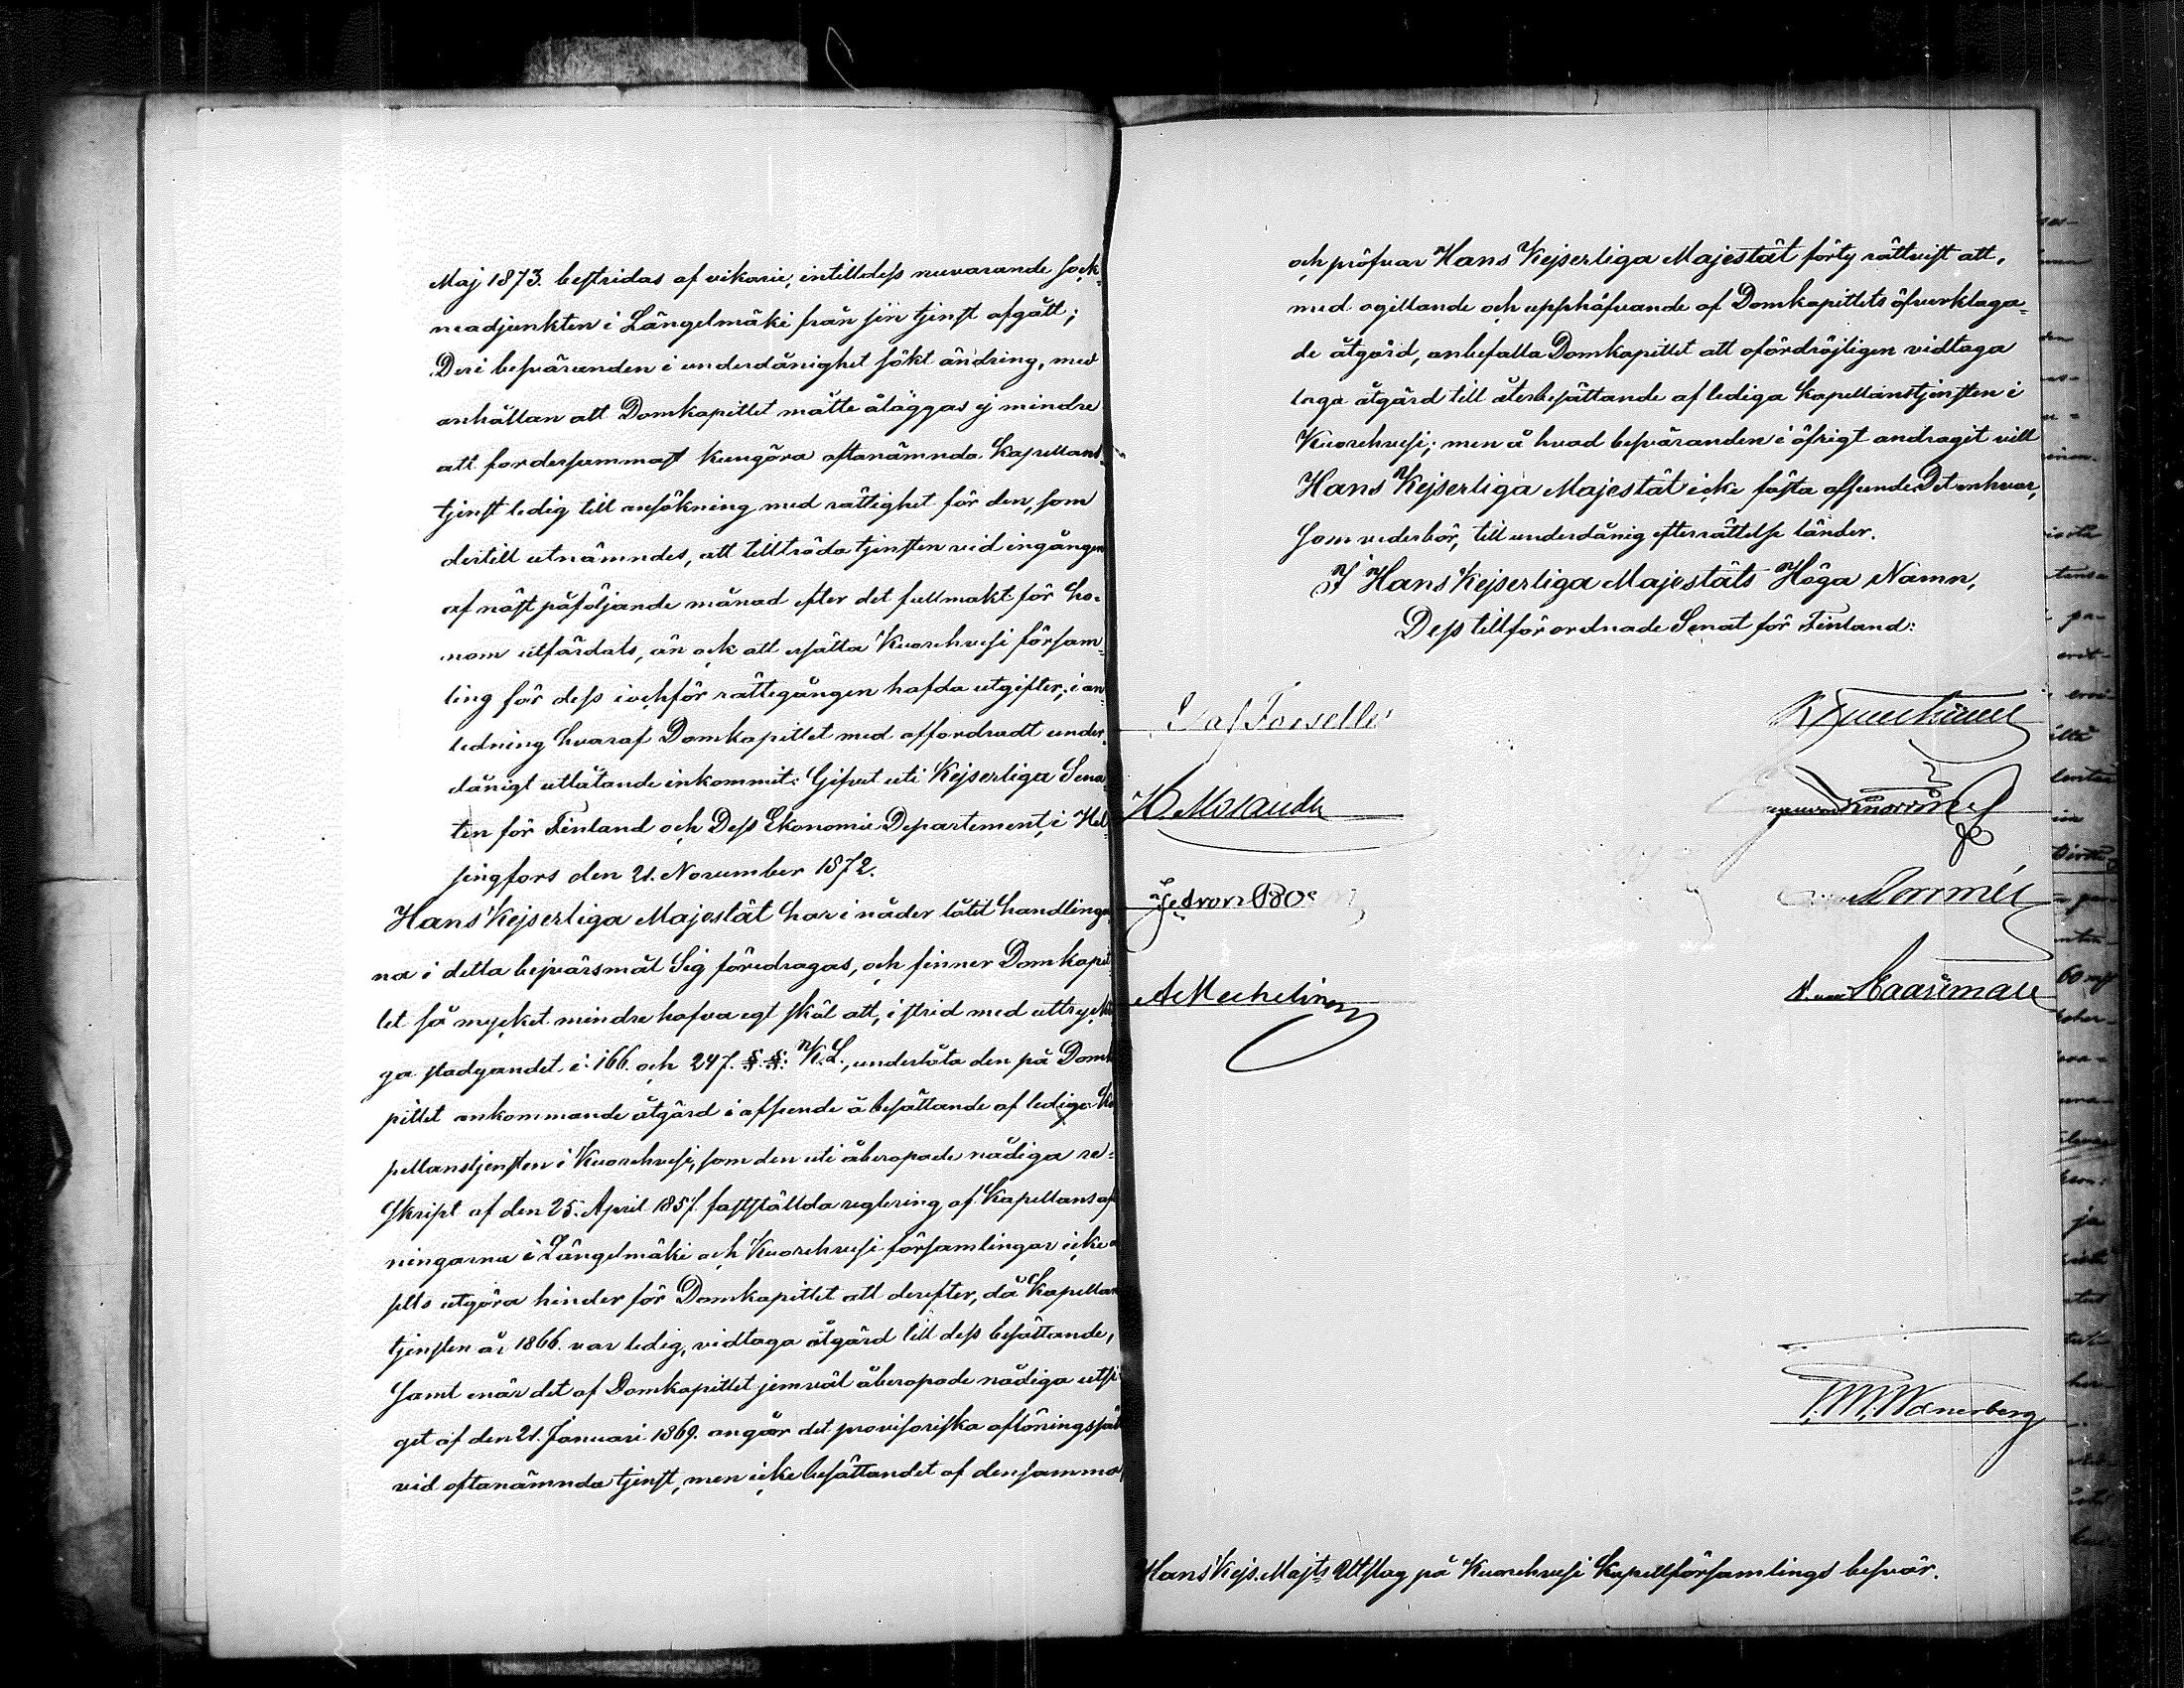 Maj 1873. bestridas af vikarie, intilldess nuvarande sock-
neadjunkten i Längelmäki från sin tjenst afgått;
Deri besväranden i underdånighet sökt ändring, med
anhållan att Domkapitlet måtte åläggas ej mindre
att fordersammast kungöra oftanämnda Kapellans-
tjenst ledig till ansökning med rättighet för den, som
dertill utnämndes, att tillträda tjensten vid ingången
af näst påföljande månad efter det fullmakt för ho-
nom utfärdats, än ock att ersätta Kuorehvesi försam-
ling för dess i och för rättegången hafda utgifter; i an-
ledning hvaraf Domkapitlet med affordradt under-
dånigt utlåtande inkommit: Gifvet uti Kejserliga Sena-
ten för Finland och Dess Ekonomie Departement, i Hel-
singfors den 21. November 1872.
Hans Kejserliga Majestät har i nåder låtit handlinga-
na i detta besvärsmål Sig föredragas, och finner Domkapit-
let så mycket mindre hafva egt skäl att, i strid med uttryckli-
ga stadgandet i 166. och 247. §.§. K.L., underlåta den på Domka-
pitlet ankommande åtgärd i afseende å besättande af lediga Ka-
pellanstjensten i Kuorehvesi, som den uti åberopade nådiga re-
skript af den 25. April 1857. fastställda reglering af Kapellansaflö-
ningarna i Längelmäki och Kuorehvesi församlingar icke
sells utgöra hinder för Domkapitlet att derefter, då Kapellans
tjensten år 1866. var ledig, vidtaga åtgärd till dess besättande,
samt enär det af Domkapitlet jemväl åberopade nådiga utsla-
get af den 21. Januari 1869. angår det provisoriska aflöningssätt
vid oftanämnda tjenst, men icke besättandet af densamma,
och pröfvar Hans Kejserliga Majestät förty rättvist att,
med ogillande och upphäfvande af Domkapitlets öfverklaga-
de åtgärd, anbefalla Domkapitlet att ofördröjligen vidtaga
laga åtgärd till återbesättande af lediga Kapellanstjensten i
Kuorehvesi; men å hvad besväranden i öfrigt andragit vill
Hans Kejserliga Majestät icke fästa afseende. Det enhvar,
som vederbör, till underdånig efterrättelse länder.
I Hans Kejserliga Majestäts Höga Namn,
Dess tillförordnade Senat för Finland:
af Forselles
H Molander
von Born
A Mechelin
Norrmén
T. W. Wænerberg
Hans Kejs. Majts Utslag på Kuorehvesi Kapellförsamlings besvär.